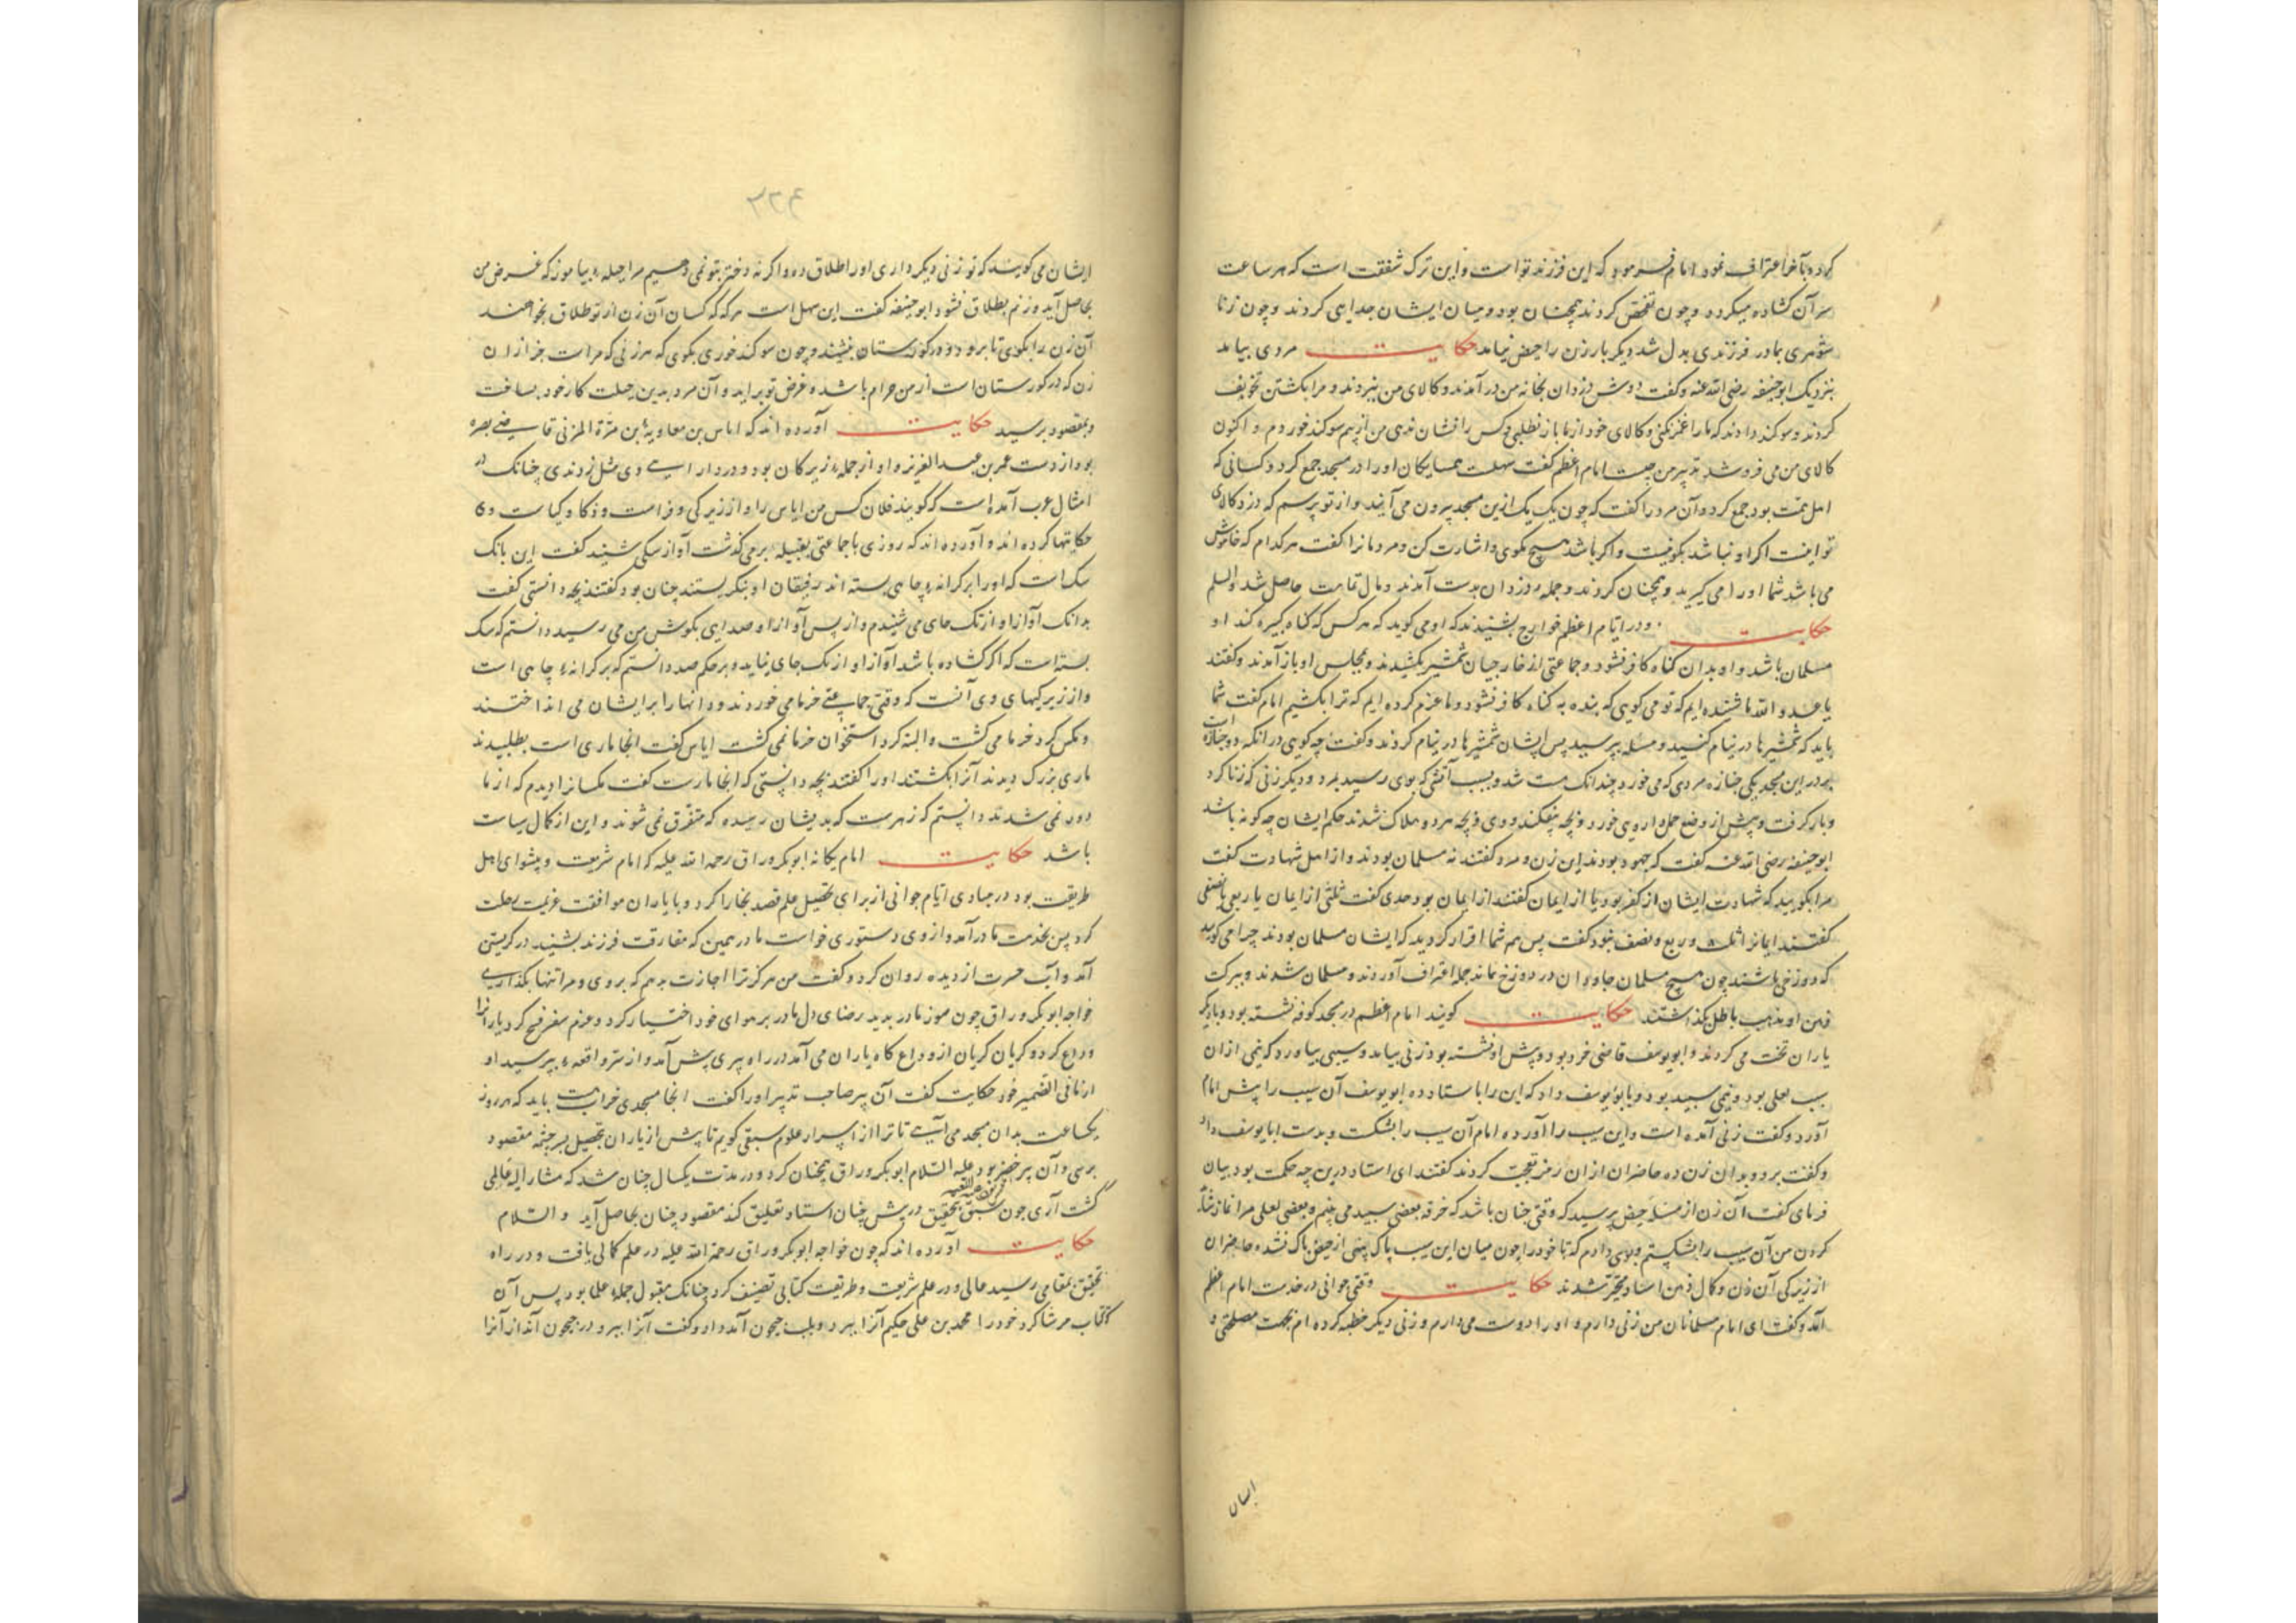 کرد و بآخر اعتراف نمود امام فرمود که این فرزند تو است و این ترک شفقت است که هر ساعت
سر آن کشاده میکرد و چون تفحص کردند همچنان بود و میان ایشان جدایی کردند و چون زنا
شوهری بمادر فرزندی بدل شد دیکر بار زن را حیض نیامد حکایت مردی بیامد
بنزدیک ابوحنیفه رضی الله عنه و کفت دوش دزدان بخانه من در آمدند و کالای من ببردند و مرا بکشتن تخویف
کردند و سوکند دادند که ما را غمز نکنی و کالای خود از ما باز نطلبی و کس را نشان ندهی من از بیم سوکند خوردم و اکنون
کالای من می فروشند تدبیر من چیست امام اعظم کفت سهلست همسایکان او را در مسجد جمع کرد و کسانی که
اهل تهمت بود جمع کرد و آن مرد را کفت که چون یک یک ازین مسجد بیرون می آیند و از تو پرسم که دزد کالای
تو اینست اکر او نباشد بکو نیست و اکر باشد هیچ مکوی و اشارت کن و مردمانرا کفت هر کدام که خاموش
می باشد شما او را می کیرید و همچنان کردند و جمله دزدان بدست آمدند و مال تمامت حاصل شد والسلم
حکایت و در ایام اعظم خوارج بشنیدند که او می کوید که هر کس که کناه کبیره کند او
مسلمان باشد و او بدان کناه کافر نشود و جماعتی از خارجیان شمشیر بکشیدند و بمجلس او باز آمدند و کفتند
یا عدو الله ما شنیده ایم که تو می کویی که بنده به کناه کافر نشود و ما عزم کرده ایم که ترا بکشیم امام کفت شما
باید که شمشیرها در نیام کنید و مسئله بپرسید پس ایشان شمشیرها در نیام کردند و کفتند چه کویی در آنکه دو جنازه است
بر در این مسجد یکی جنازه مردی که می خورد چندانک مست شد و بسبب آتشی که بوی رسید بمرد و دیکر زنی که زنا کرد
و بار کرفت و پیش از وضع حمل داروی خورد و بچه بیفکند و وی و بچه مرد و هلاک شدند حکم ایشان چه کونه باشد
ابوحنیفه رضی الله عنه کفت که جهود بودند این زن و مرد کفتند نه مسلمان بودند و از اهل شهادت کفت
مرا بکویید که شهادت ایشان از کفر بود یا از ایمان کفتند از ایمان بود حدی کفت ثلثی از ایمان یا ربعی یا نصفی
کفتند ایمانرا ثلث و ربع و نصف نبود کفت پس هم شما اقرار کردید که ایشان مسلمان بودند چرا می کویید
که دوزخی باشند چون هیچ مسلمان جاودان در دوزخ نماند جمله اعتراف آوردند و مسلمان شدند و ببرکت
ذهن او مذهب باطل بکذاشتند حکایت کویند امام اعظم در مسجد کوفه نشسته بود و با دیکر
یاران بحث می کردند و ابویوسف قاضی خرد بود و پیش او نشسته بود زنی بیامد و سیبی بیاورد که نیمی ازان
سیب لعلی بود و نیمی سپید بود و بابویوسف داد که این را باستاد ده ابویوسف آن سیب را پیش امام
آورد و کفت زنی آمده است و این سیب را آورده امام آن سیب را بشکست و بدست ابایوسف داد
و کفت برو و بدان زن ده حاضران ازان رمز تعجب کردند کفتند ای استاد درین چه حکمت بود بیان
فرمای کفت آن زن از مسئله حیض پرسید که وقتی چنان باشد که خرقه بعضی سپید می بینم و بعضی لعلی مرا نماز شاید
کردن من آن سیب را بشکستم و بوی دادم که تا خود را چون میان این سیب پاک نبینی از حیض پاک نشده حاضران
از زیرکی آن زن و کمال ذهن استاد متحیر شدند حکایت وقتی جوانی در خدمت امام اعظم
آمد و کفت ای امام مسلمانان من زنی دارم و او را دوست می دارم و زنی دیکر خطبه کرده ام بجهت مصلحتی و
ایشان
۳۲۴
ایشان می کویند که تو زنی دیکر داری او را طلاق ده و اکر نه دختر بتو نمی دهیم مرا حیله بیاموز که غرض من
بحاصل آید و زنم بطلاق نشود ابوحنیفه کفت این سهل است هر که که کسان آن زن از تو طلاق بخواهند
آن زن را بکوی تا برود و در کورستان بنشیند و چون سوکند خوری بکوی که هر زنی که مراست جز از ان
زن که در کورستان است از من حرام باشد غرض تو براید و آن مرد بدین حیلت کار خود بساخت
و بمقصود برسید حکایت آورده اند که ایاس بن معاویة ابن مرة المزنی قاضی بصره
بود از دست عمر بن عبد العزیز و او از جمله زیرکان بود و در دار ایسی وی مثل زدندی چنانک در
امثال عرب آمده است که کویند فلان کس من ایاس را و از زیرکی و فراست و ذکا و کیاست وی
حکایتها کرده اند و آورده اند که روزی با جماعتی بقبیله بر می کذشت آواز سکی شنید کفت این بانک
سک است که او را بر کرانه چاهی بسته اند رفیقان او بنکریستند چنان بود کفتند بچه دانستی کفت
بدانک آواز او از تک جای می شنیدم و از پس آواز او صدایی بکوش من می رسید دانستم که سک
بسته است که اکر کشاده باشد آواز او از یک جای نیاید و بر حکم صدا دانستم که بر کرانه چاهی است
و از زیرکیهای وی آنست که وقتی جماعتی خرما می خوردند و دانها را برایشان می انداختند
و مکس کرد خرما می کشت و البته کرد استخوان خرما نمی کشت ایاس کفت انجا ماری است بطلبیدند
ماری بزرک دیدند آنرا بکشتند او را کفتند بچه دانستی که انجا مارست کفت مکسانرا دیدم که از ما
دور نمی شدند دانستم که زهرست که بدیشان رسیده که متفرق نمی شوند و این از کمال سیاست
باشد حکایت امام یکانه ابوبکر وراق رحمه الله علیه که امام شریعت و پیشوای اهل
طریقت بود در مبادی ایام جوانی از برای تحصیل علم قصد بخارا کرد و با یاران موافقت عزیمت رحلت
کرد پس بخدمت مادر آمد و از وی دستوری خواست مادر همین که مفارقت فرزند بشنید در کریستن
آمد و آب حسرت از دیده روان کرد و کفت من هرکز ترا اجازت ندهم که بروی و مرا تنها بکذاری
خواجه ابوبکر وراق چون سوز مادر بدید رضای دل مادر بر هوای خود اختیار کرد و عزم سفر فسخ کرد یارانرا
وداع کرد و کریان کریان از وداع کاه یاران می آمد در راه پیری پیش آمد و از سر واقعه بپرسید او
از ما فی الضمیر خود حکایت کفت آن پیر صاحب تدبیر او را کفت انجا مسجدی خرابست باید که هر روز
یکساعت بدان مسجد می آیی تا ترا از اسرار علوم سبقی کویم تا پیش از یاران تحصیل بسر چشمه مقصود
برسی و آن پیر خضر بود علیه السلام ابوبکر وراق همچنان کرد و در مدت یکسال چنان شد که مشار الیه عالمی
کشت آری چون سبق تحقیق در پیش چنان استاد تعلیق کند مقصود چنان بحاصل آید والسلام
حکایت آورده اند که چون خواجه ابوبکر وراق رحمة الله علیه در علم کمالی یافت و در راه
تحقیق بمقامی رسید عالی و در علم شریعت و طریقت کتابی تصنیف کرد چنانک مقبول جمله علما بود پس آن
کتاب مر شاکرد خود را محمد بن علی حکیم آنرا ببرد و بلب جیحون آمد و او کفت آنرا ببر و در جیحون آنداز آنرا